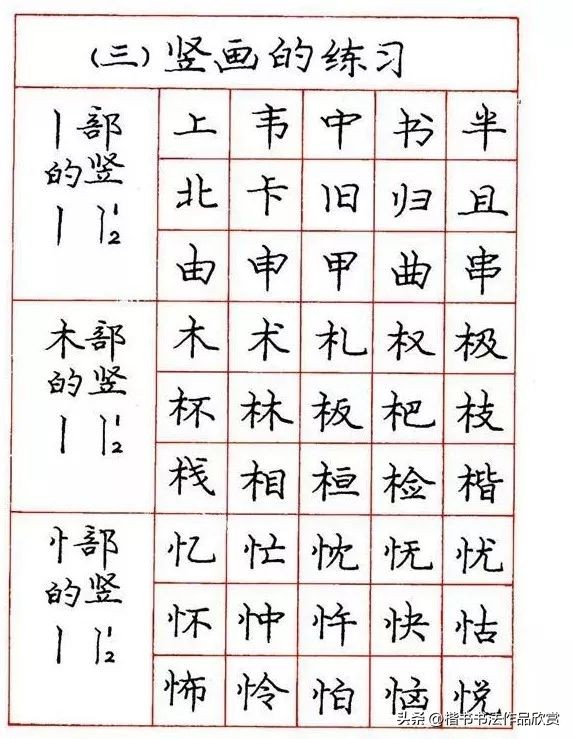 (三)竖画的练习
丨部的竖
丨 1 2
上 韦 中 书 半
北 卡 旧 归 且
由 申 甲 曲 串
木部的竖
丨 1 2
木 术 札 权 极
杯 林 板 杷 枝
栈 相 桓 检 楷
忄部的竖
丨 1 2
忆 忙 忱 怃 忧
怀 忡 忤 快 怙
怖 怜 怕 恼 悦
头条 @楷书书法作品欣赏